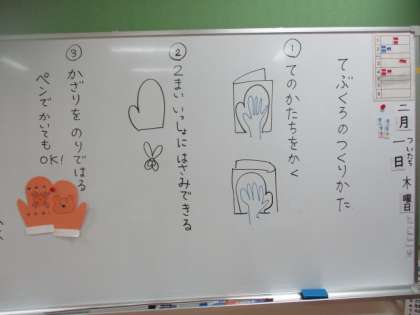 てぶくろのつくりかた
① てのかたちをかく
② 2まいいっしょにはさみできる
③ かざりをのりではる
ペンでかいてもOK!
二月一日木曜日
ついたち